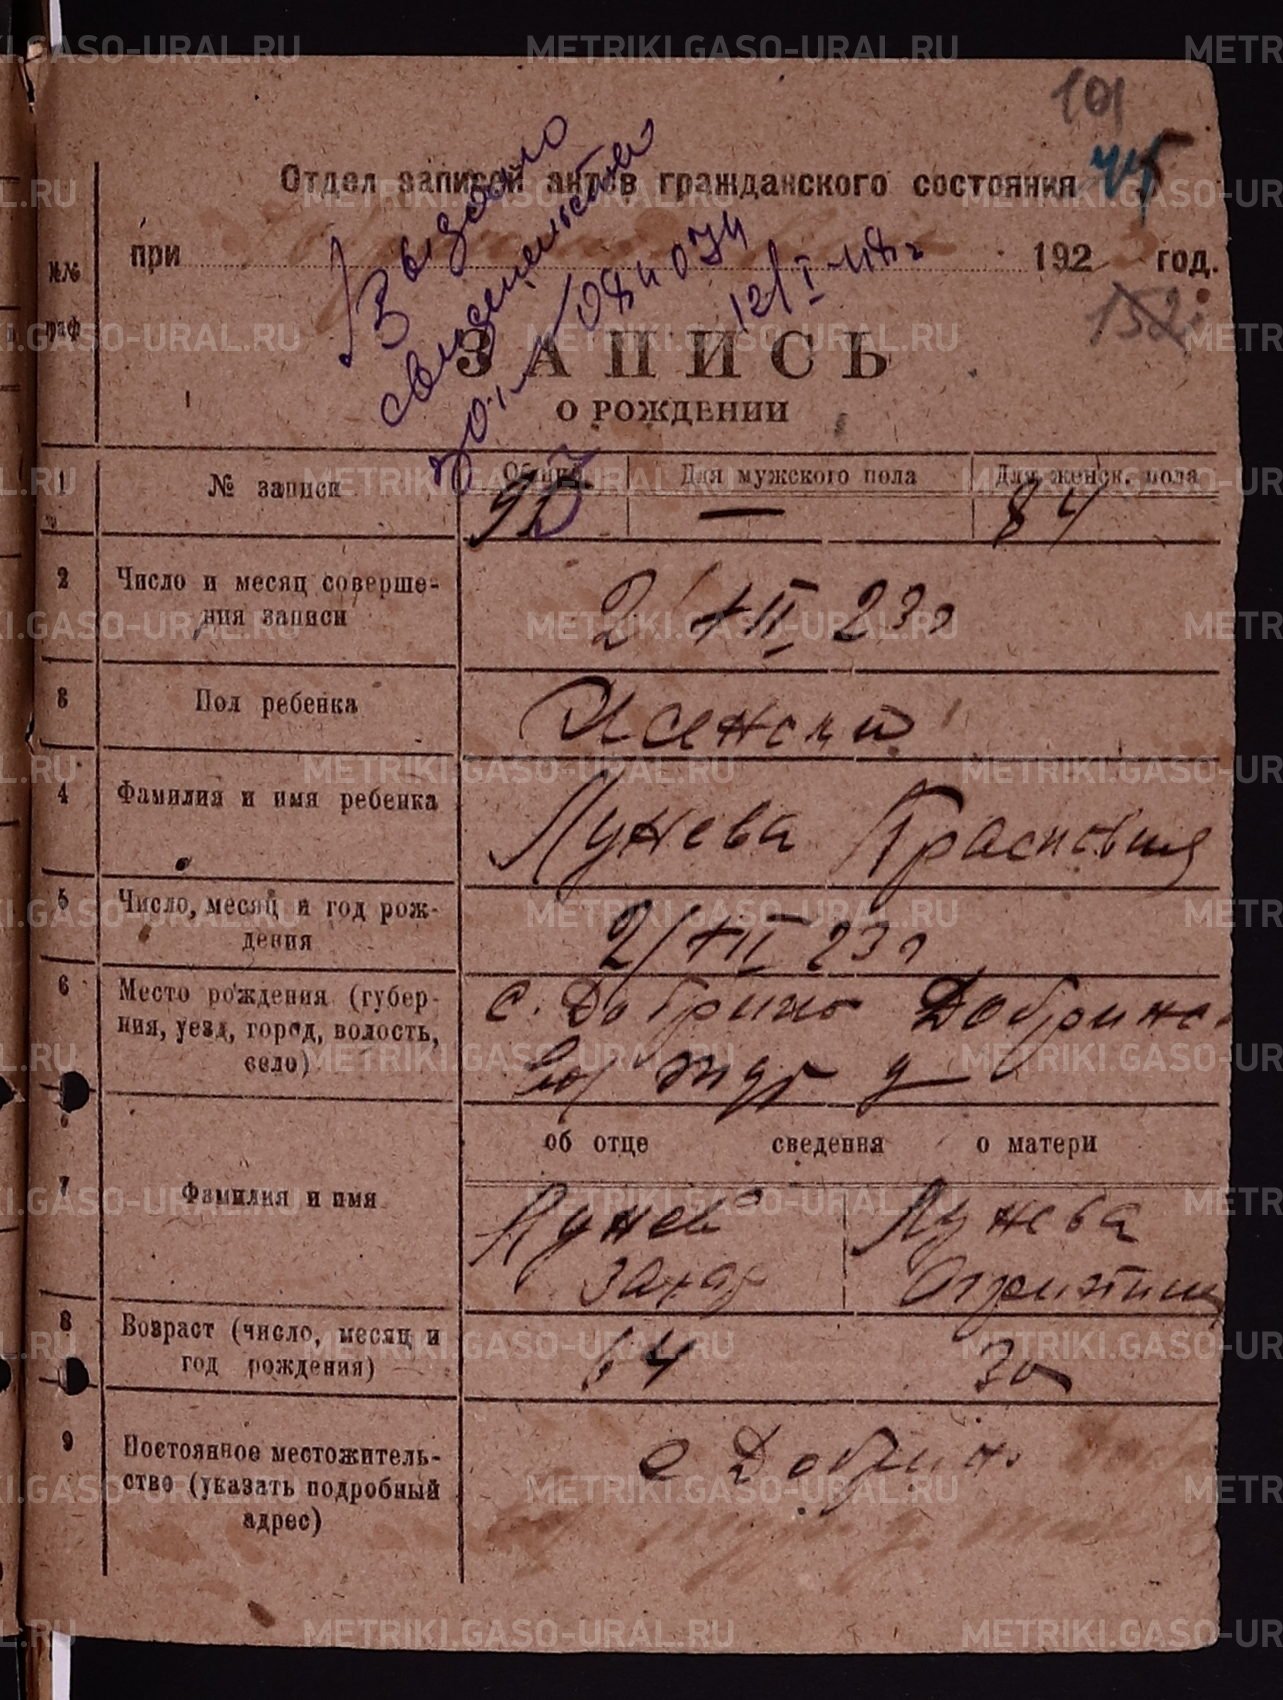 101
Отдел записей актов гражданского состояния
45
при 192 год.
152
Выдано
свидетельство
084074
12/I-48г
№№
граф
ЗАПИСЬ
О РОЖДЕНИИ
1 № записи Общий Для мужского пола Для женск. пола
— 84
2 Число и месяц соверше-
ния записи
2/XII 23г
3 Пол ребенка Женский
4 Фамилия и имя ребенка Лунева Прасковия
5 Число, месяц и год рож-
дения
2/XII 23г
6 Место рождения (губер-
ния, уезд, город, волость,
село)
с. Добрино Добринс.
вол
у
об отце сведения о матери
7 Фамилия и имя
Лунев Лунева
Захар
8 Возраст (число, месяц и
год рождения)
64 30
9 Постоянное местожитель-
ство (указать подробный
адрес)
с Добрин.
METRIKI.GASO-URAL.RU